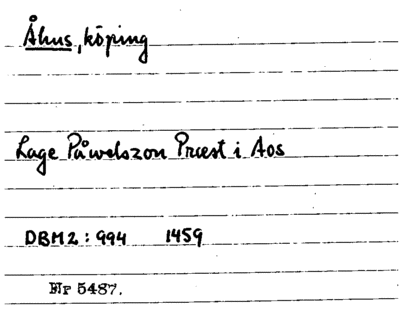 Åhus, köping
Lage Påwelszon Præst i Aos
DBM2: 994 1459
Nr 5487.